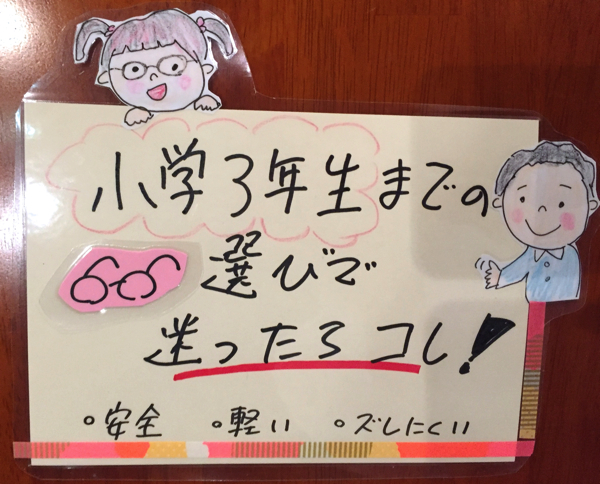 小学3年生までの
選びで
迷ったらコレ!
•安全 •軽い •ズレにくい